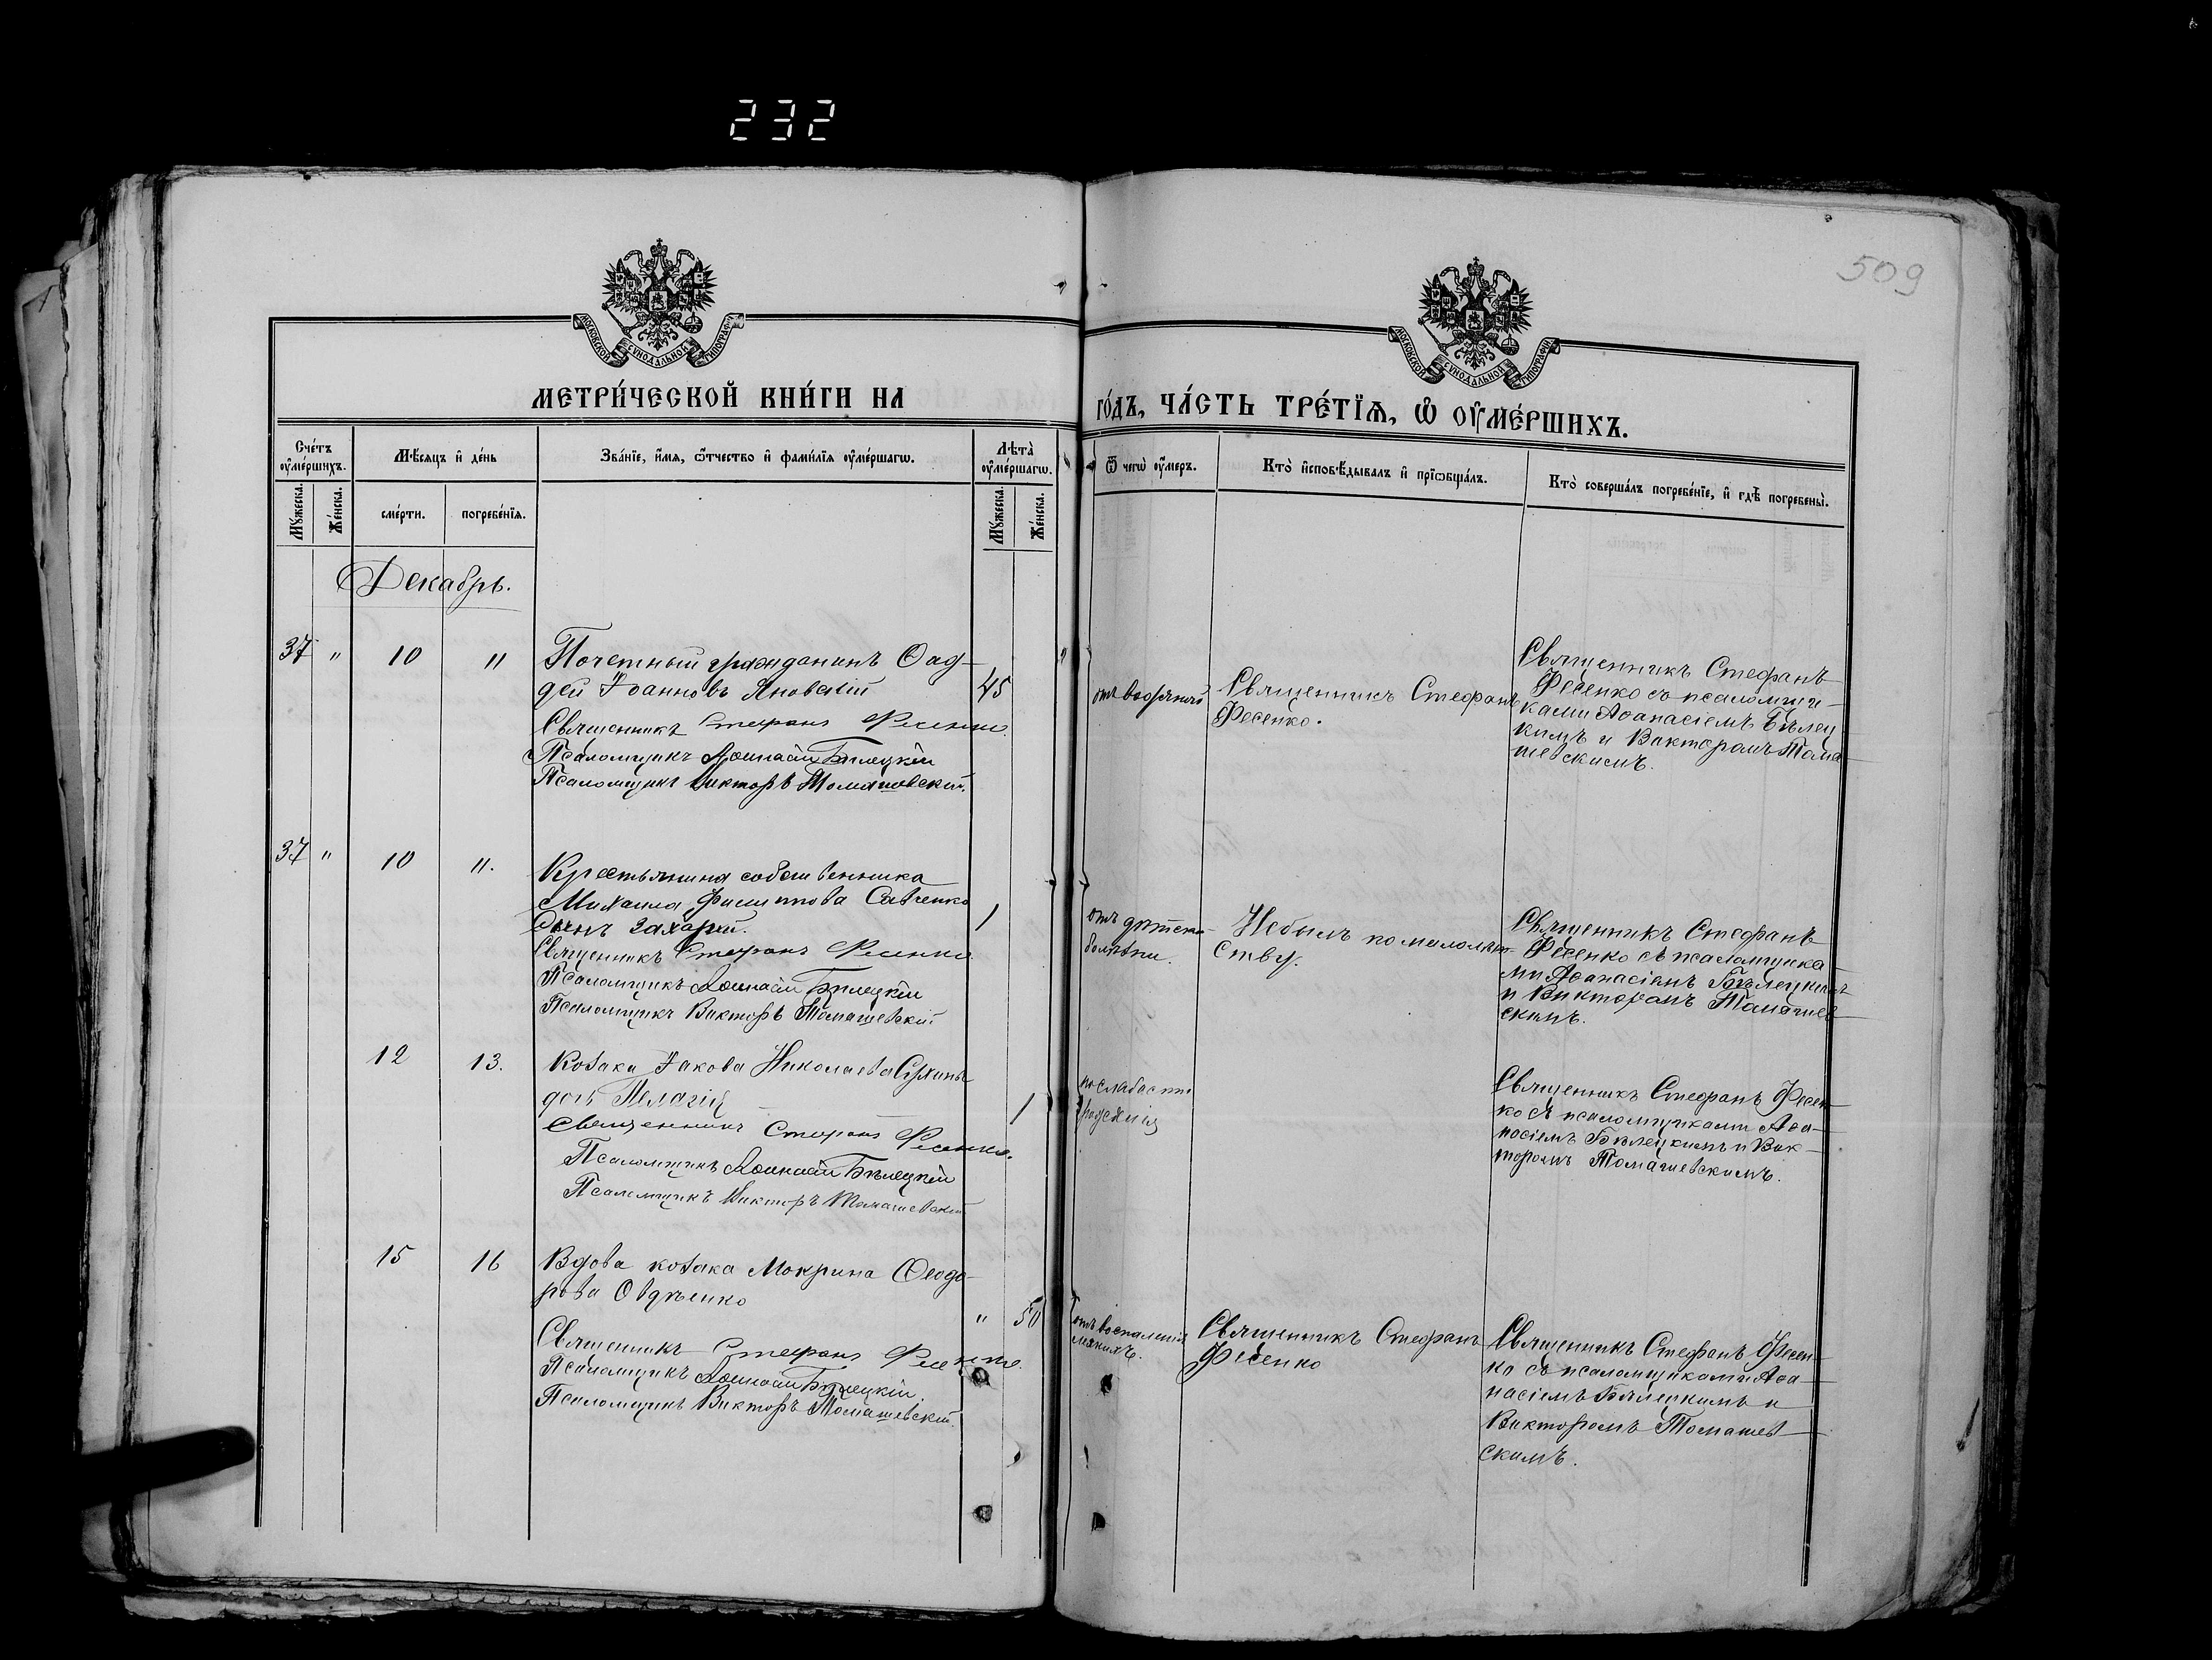 232
509
МОСКОВСКОЙ СѴНОДАЛЬНОЙ ТИПОГРАФІИ
МОСКОВСКОЙ СѴНОДАЛЬНОЙ ТИПОГРАФІИ
МЕТРИ́ЧЕСКОЙ КНИ́ГИ НА
ГО́ДЪ, ЧА́СТЬ ТРЕ́ТЇѦ, Ѡ҆ ОУ҆МЕ́РШИХЪ.
Сче́тъ оу҆ме́ршихъ.
Мѣ́сяцъ и҆ де́нь
Зва́нїе, и҆́мя, ѻ҆́тчество и҆ фами́лїя оу҆ме́ршагѡ.
Лѣта̀ оу҆ме́ршагѡ.
Ѿ чегѡ̀ оу҆́меръ.
Кто̀ и҆сповѣ́дывалъ и҆ прїѡбща́лъ.
Кто̀ соверша́лъ погребе́нїе, и҆ гдѣ̀ погребены̀.
Му́жеска.
Же́нска.
сме́рти.
погребе́нїя.
Му́жеска.
Же́нска.
Декабрь.
37 " 10 11
Почетный гражданинъ Ѳад-
дей Іоанновъ Яновскій
45
Священникъ Стефанъ Фесенко
Псаломщикъ Аѳанасій Бѣлецкій
Псаломщикъ Викторъ Томашевскій.
отъ
Священникъ Стефанъ
Фесенко.
Священникъ Стефанъ
Фесенко съ псаломщи-
ками Аѳанасіемъ Бѣлец
кимъ и Викторомъ Тома-
шевскимъ.
37 " 10 11.
Крестьянина собственника
Михаила Филиппова Савченко
сынъ Захарій.
1
Священникъ Стефанъ Фесенко
Псаломщикъ Аѳанасій Бѣлецкій
Псаломщикъ Викторъ Томашевскій
отъ дѣтской
болѣзни.
Небылъ по малолѣт-
ству.
Священникъ Стефанъ
Фесенко съ псаломщика-
ми Аѳанасіемъ Бѣлецкимъ
и Викторомъ Томашев-
скимъ.
12 13.
Козака Іакова Николаева
дочь Пелагія
1
Священникъ Стефанъ Фесенко.
Псаломщикъ Аѳанасій Бѣлецкій
Псаломщикъ Викторъ Томашевскій
по слабости
рожденія
Священникъ Стефанъ Фесен-
ко съ псаломщиками Аѳа-
насіемъ Бѣлецкимъ и Вик-
торомъ Томашевскимъ.
15 16
Вдова козака Мокрина Ѳеодо-
рова Овдѣенко
" 50
Священникъ Стефанъ Фесенко.
Псаломщикъ Аѳанасій Бѣлецкій.
Псаломщикъ Викторъ Томашевскій.
отъ воспаленія
легкихъ.
Священникъ Стефанъ
Фесенко
Священникъ Стефанъ Фесен-
ко съ псаломщиками Аѳа-
насіемъ Бѣлецкимъ и
Викторомъ Томашев-
скимъ.